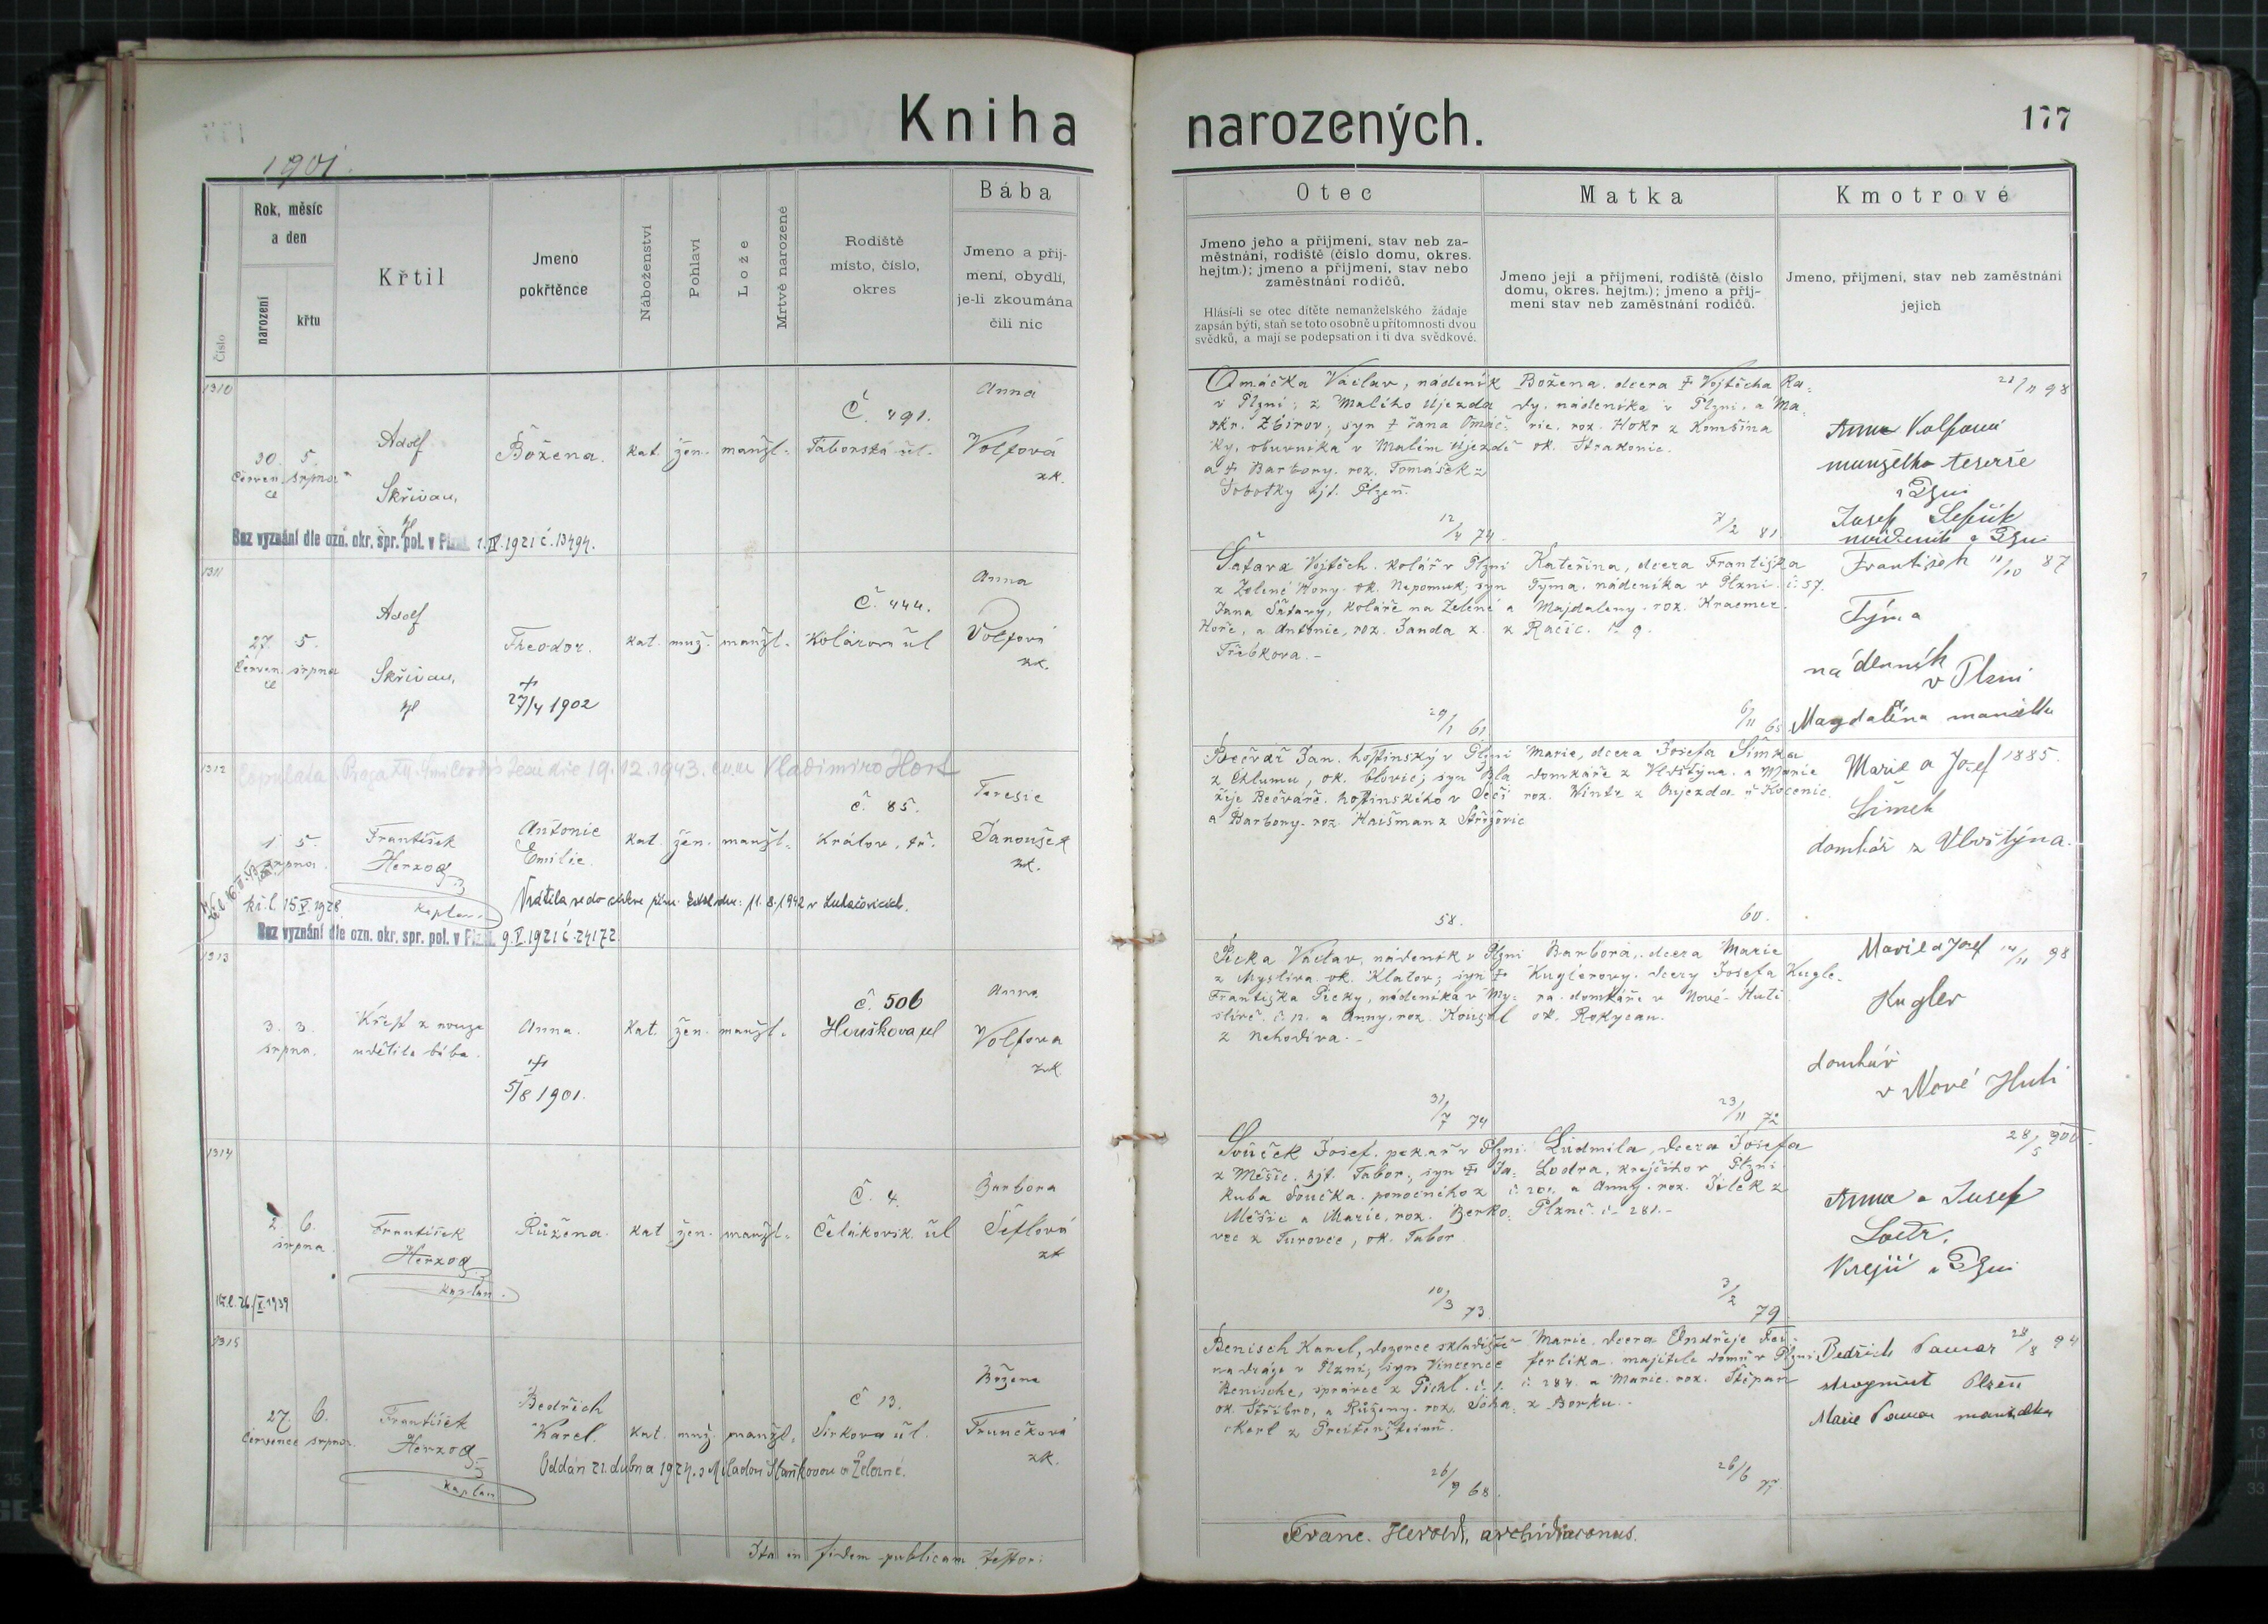 Kniha narozených.
177
1901.
Číslo
Rok, měsíc
a den
narození
křtu
Křtil
Jmeno
pokřtěnce
Náboženství
Pohlaví
Lože
Mrtvě narozené
Rodiště
místo, číslo,
okres
Bába
Jmeno a příj-
mení, obydlí,
je-li zkoumána
čili nic
Otec
Jmeno jeho a příjmení, stav neb za-
městnání, rodiště (číslo domu, okres.
hejtm.); jmeno a příjmení, stav nebo
zaměstnání rodičů.
Hlásí-li se otec dítěte nemanželského žádaje
zapsán býti, staň se toto osobně u přítomnosti dvou
svědků, a mají se podepsati on i ti dva svědkové.
Matka
Jmeno její a příjmení, rodiště (číslo
domu, okres. hejtm.); jmeno a příj-
mení stav neb zaměstnání rodičů.
Kmotrové
Jmeno, příjmení, stav neb zaměstnání
jejich
1310
30. 5.
Červen srpna
ce
Adolf
Skřivan,
Božena.
kat. žen. manžl.
Č. 491.
Táborská ul.
Anna
Volfová
zk.
Bez vyznání dle ozn. okr. spr. pol. v Plzni. 1.IV.1921 č.13494.
Omáčka Václav, nádeník
v Plzni; z Malého Újezda
okr. Zbirov; syn † Jana Omáč-
ky, obuvníka v Malém Újezdě
a † Barbory. roz. Tomášek z
Sobotky hjt. Plzeň.
12/4 74
Božena. dcera † Vojtěcha Ra-
dy. nádeníka v Plzni. a Ma-
rie. roz. Hokr z Komšína
ok. Strakonic.
7/2 81
21/11 98
Anna Volfová
manželka
v Plzni
Josef
nádeník v Plzni
1311
27. 5.
Červen srpna
ce
Adolf
Skřivan,
Theodor.
†
27/4 1902
kat. muž. manžl.
Č. 444.
Kolárova ul
Anna
Volfová
zk.
Šatava Vojtěch. kolář v Plzni
z Zelené Hory. ok. Nepomuk; syn
Jana Šatavy, koláře na Zelené
Hoře, a Antonie, roz. Janda z.
Třebkova.
29/1 61
Kateřina, dcera Františka
Týma. nádeníka v Plzni. č. 57.
a Majdaleny. roz. Kraemer.
z Račic. č. 9.
6/11 65
František 11/10 87
Týma
nádenník
v Plzni
Magdaléna manželka
1312
Copulata Praga VII. 19.12.1943. cum Vladimiro Hort
1 5.
srpna.
František
Herzog
kaplan.
Antonie
Emilie.
kat. žen. manžl.
č. 85.
Králov. tř.
Teresie
Janoušek
zk.
kř.l. 15.V.1928
Vrátila se do církve řím. 11.8.1942 v Luhačovicích.
Bez vyznání dle ozn. okr. spr. pol. v Plzni. 9.V.1921 č.24172
Bečvář Jan. hostinský v Plzni
z Chlumu, ok. Blovic; syn Bla
žeje Bečváře. hostinského v Sečí
a Barbory. roz. Haišman z Střížovic
58.
Marie, dcera Josefa Šimka
domkáře z Vlčtýna. a Marie
roz. Wintr z Oujezda u Kocenic.
60.
Marie a Josef 1885.
Šimek
domkář z Vlvčtýna.
1313
3. 3.
srpna.
Křest z nouze
udělila bába.
Anna.
†
5/8 1901.
kat. žen. manžl.
č. 506
Houškova ul
Anna
Volfova
zk
Picka Václav, nádeník v Plzni
z Myslíva. ok. Klatov; syn †
Františka Picky, nádeníka v My-
slívě. č. 12. a Anny, roz. Kougl
z Nehodiva.
31/7 74
Barbora, dcera Marie
Kuglerovy. dcery Josefa Kugle-
ra. domkáře v Nové-Huti
ok. Rokycan.
23/11 72
Marie a Josef 14/11 98
Kugler
domkář
v Nové Huti
1314
2. 6.
srpna.
František
Herzog
kaplan.
Růžena.
kat žen. manžl.
Č. 4.
Čelakovsk. ul
Barbora
Šeflová
zk
kř.l. 26./V.1939
Souček Josef. pekař v Plzni.
z Měšic. hjt. Tabor; syn † Ja-
kuba Součka. ponocného z
Měšic a Marie, roz. Berko-
vec z Turovce, ok. Tabor.
10/3 73.
Ludmila, dcera Josefa
Lodra, krejčího v Plzni
č. 201. a Anny. roz. Jílek z
Plzně. č. 281.
3/2 79
28/5 900.
Anna a Josef
Krejčí v Plzni
1315
27. 6.
července srpna.
František
Herzog
kaplan
Bedřich
Karel.
kat. muž. manžl.
Č 13.
Jirkova ul.
Božena
Trunečková
zk.
Oddán 21. dubna 1924. s Miladou Staňkovou
Benisch Karel, dozorce skladiště
na dráze v Plzni; syn Vincence
Benische, správce z Pichl. č. 1.
ok. Stříbro, a Růženy. roz. Soha-
ckerl z Preitenšteinu.
26/9 68.
Marie. dcera Ondřeje Dei-
ferlíka. majitele domu v Plzni
č. 284. a Marie. roz. Štěpan
z Borku.
26/6 77.
Bedřich Pauer 28/8 94
strojmist Plzeň
Marie Pauer manželka
Ita in fidem publicam testor:
Franc. Herold, archidiaconus.